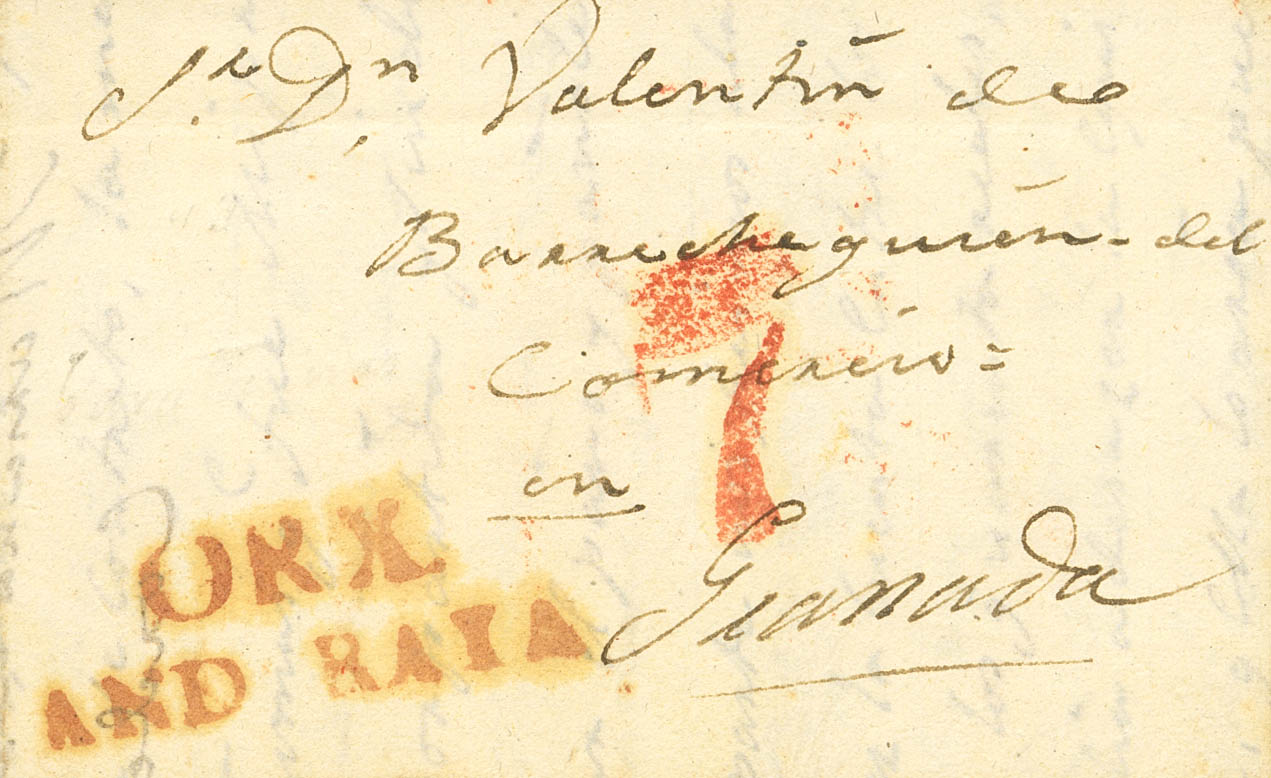 Sr. Dn. Valentin de
Barrecheguren - del
Comercio =
en
Granada
7
ORX
AND BAXA